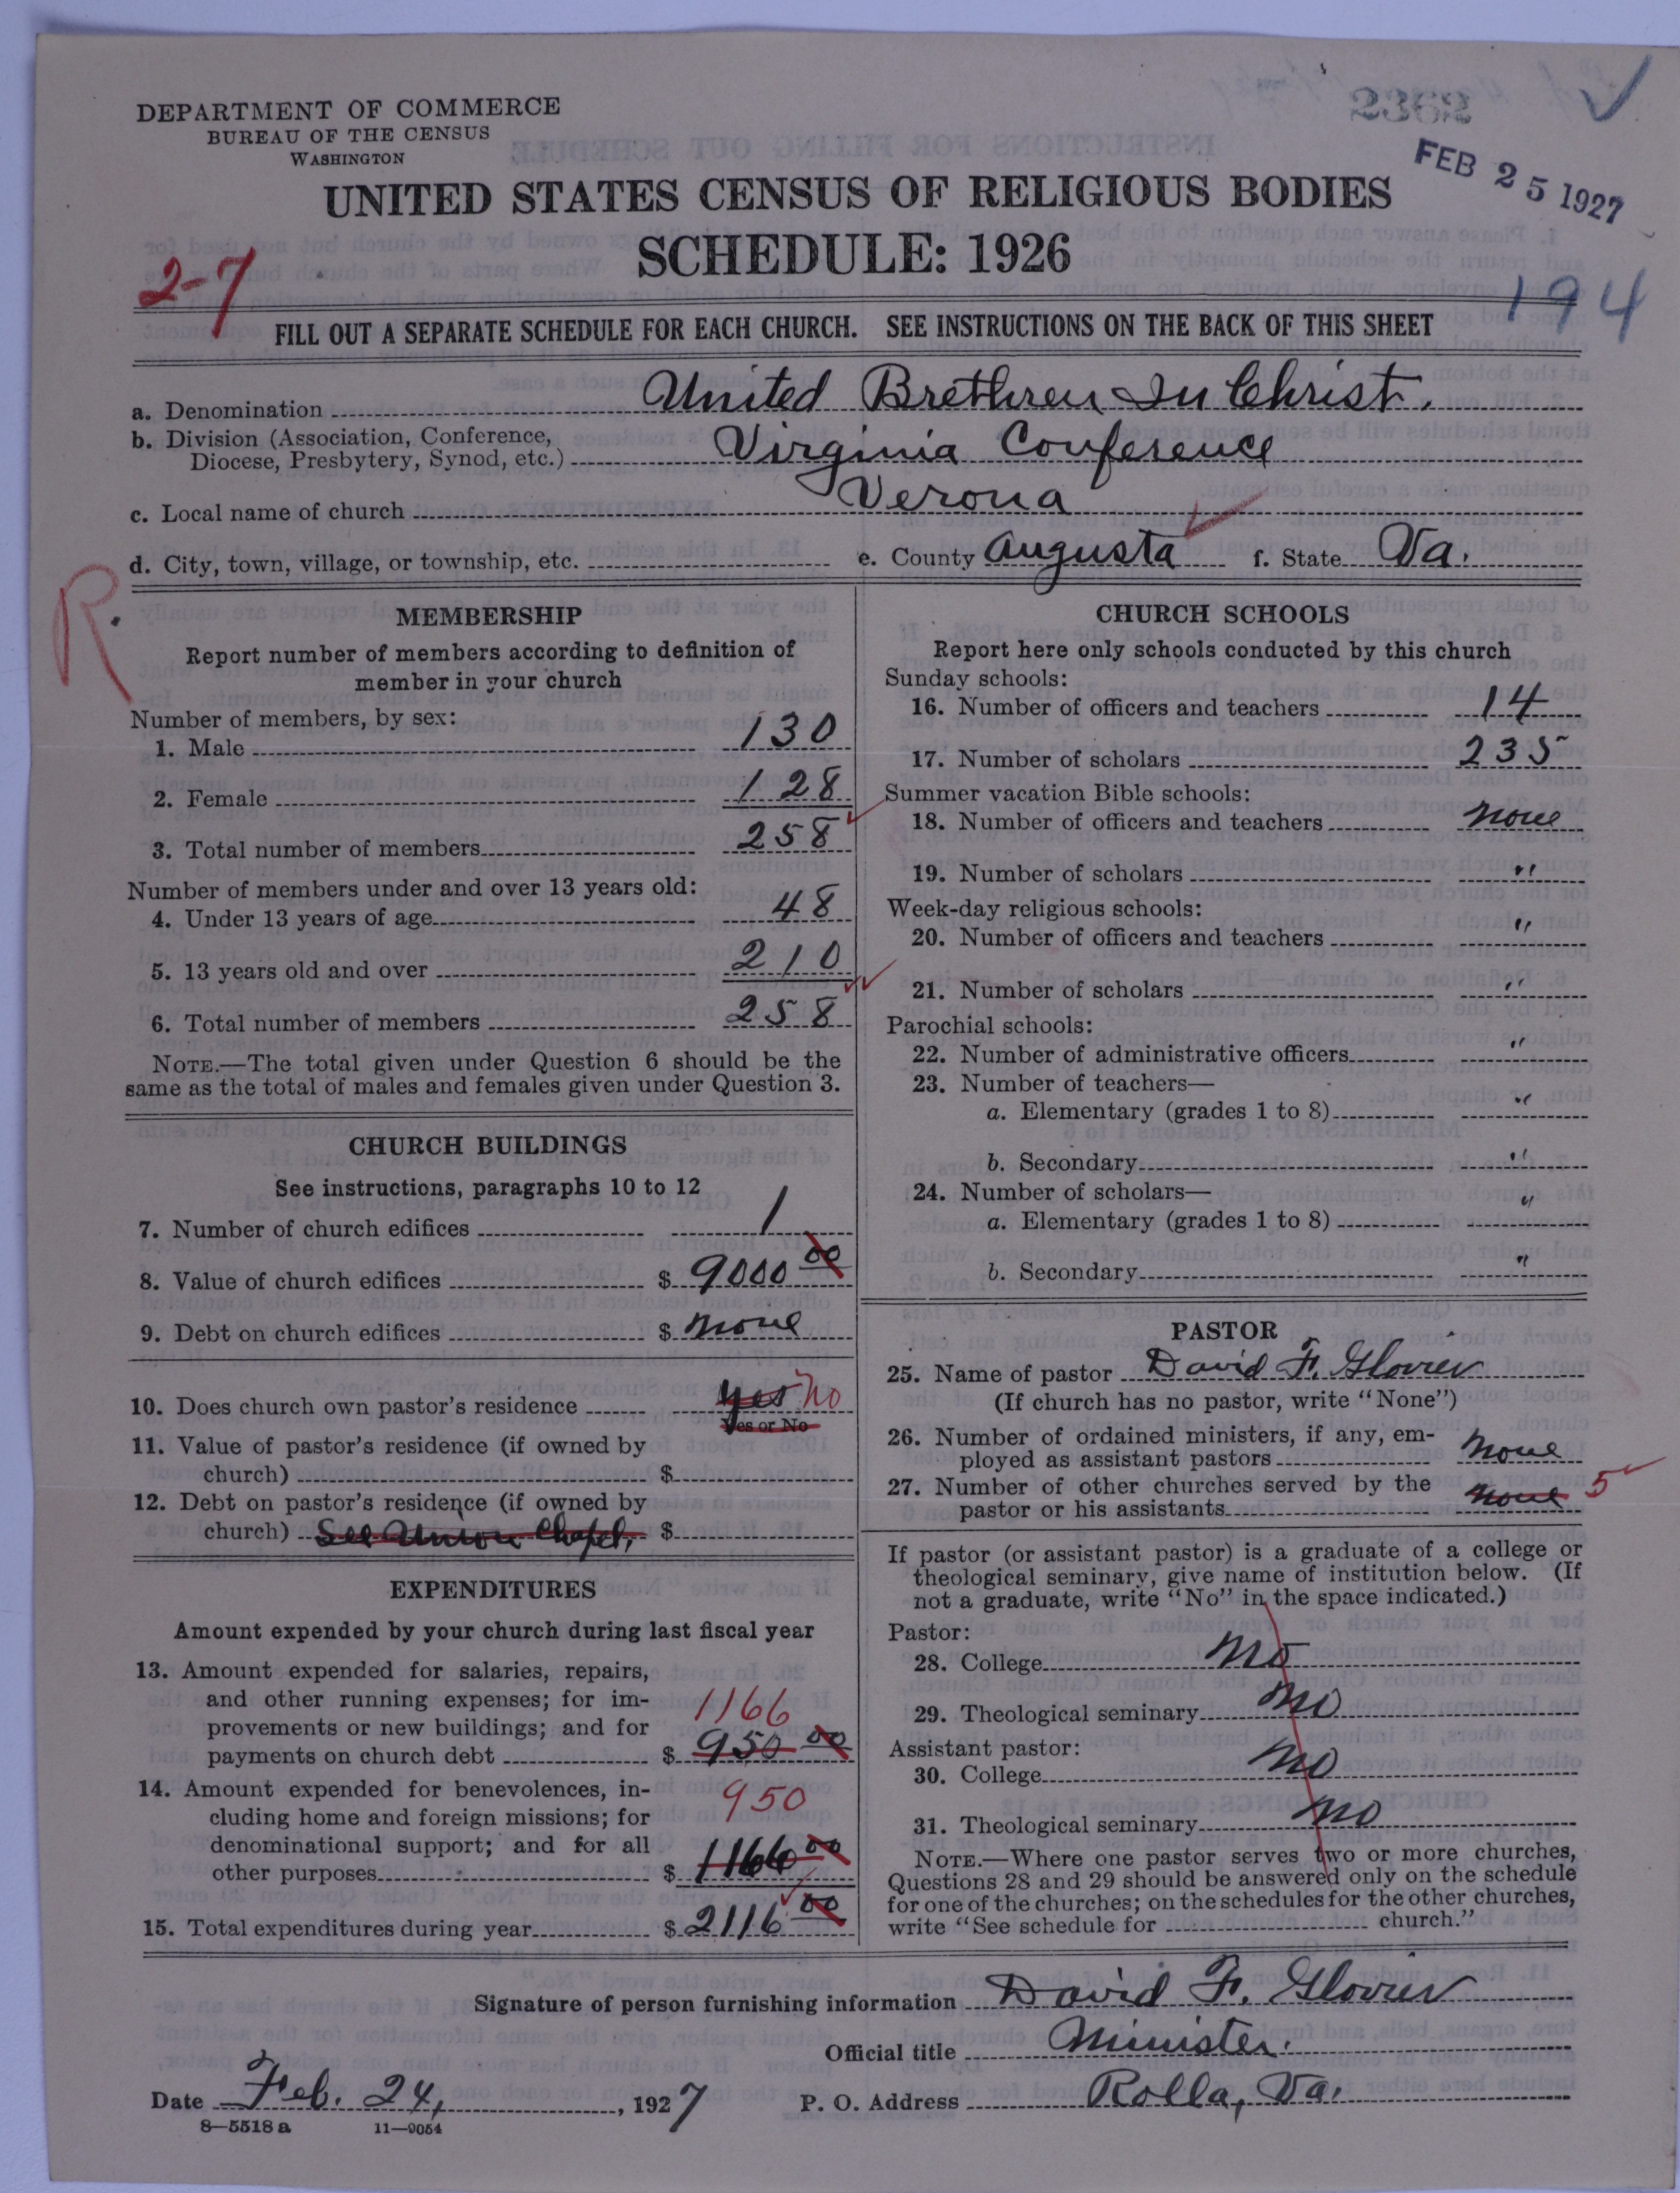 2362
DEPARTMENT OF COMMERCE
BUREAU OF THE CENSUS
WASHINGTON
FEB 25 1927
UNITED STATES CENSUS OF RELIGIOUS BODIES
SCHEDULE: 1926
2-7
194
FILL OUT A SEPARATE SCHEDULE FOR EACH CHURCH. SEE INSTRUCTIONS ON THE BACK OF THIS SHEET
a. Denomination United Brethren In Christ.
b. Division (Association, Conference,
Diocese, Presbytery, Synod, etc.) Virginia Conference
c. Local name of church Verona
d. City, town, village, or township, etc. e. County Augusta f. State Va.
R.
MEMBERSHIP
Report number of members according to definition of
member in your church
Number of members, by sex:
1. Male 130
2. Female 128
3. Total number of members 258
Number of members under and over 13 years old:
4. Under 13 years of age 48
5. 13 years old and over 210
6. Total number of members 258
NOTE.—The total given under Question 6 should be the
same as the total of males and females given under Question 3.
CHURCH BUILDINGS
See instructions, paragraphs 10 to 12
7. Number of church edifices 1
8. Value of church edifices $ 9000 00
9. Debt on church edifices $ None
10. Does church own pastor's residence yes No
Yes or No
11. Value of pastor's residence (if owned by
church) $
12. Debt on pastor's residence (if owned by
church) See Union Chapel, $
EXPENDITURES
Amount expended by your church during last fiscal year
13. Amount expended for salaries, repairs,
and other running expenses; for im-
provements or new buildings; and for 1166
payments on church debt $ 950 00
14. Amount expended for benevolences, in- 950
cluding home and foreign missions; for
denominational support; and for all
other purposes $ 1166 00
15. Total expenditures during year $ 2116 00
CHURCH SCHOOLS
Report here only schools conducted by this church
Sunday schools:
16. Number of officers and teachers 14
17. Number of scholars 235
Summer vacation Bible schools:
18. Number of officers and teachers None
19. Number of scholars "
Week-day religious schools:
20. Number of officers and teachers "
21. Number of scholars "
Parochial schools:
22. Number of administrative officers "
23. Number of teachers—
a. Elementary (grades 1 to 8) "
b. Secondary "
24. Number of scholars—
a. Elementary (grades 1 to 8) "
b. Secondary "
PASTOR
25. Name of pastor David F. Glovier
(If church has no pastor, write "None")
26. Number of ordained ministers, if any, em-
ployed as assistant pastors None
27. Number of other churches served by the
pastor or his assistants None 5
If pastor (or assistant pastor) is a graduate of a college or
theological seminary, give name of institution below. (If
not a graduate, write "No" in the space indicated.)
Pastor:
28. College No
29. Theological seminary No
Assistant pastor:
30. College No
31. Theological seminary No
NOTE.—Where one pastor serves two or more churches,
Questions 28 and 29 should be answered only on the schedule
for one of the churches; on the schedules for the other churches,
write "See schedule for church."
Signature of person furnishing information David F. Glovier
Official title Minister.
Date Feb. 24, 1927 P. O. Address Rolla, Va.
8—5518 a 11—9054